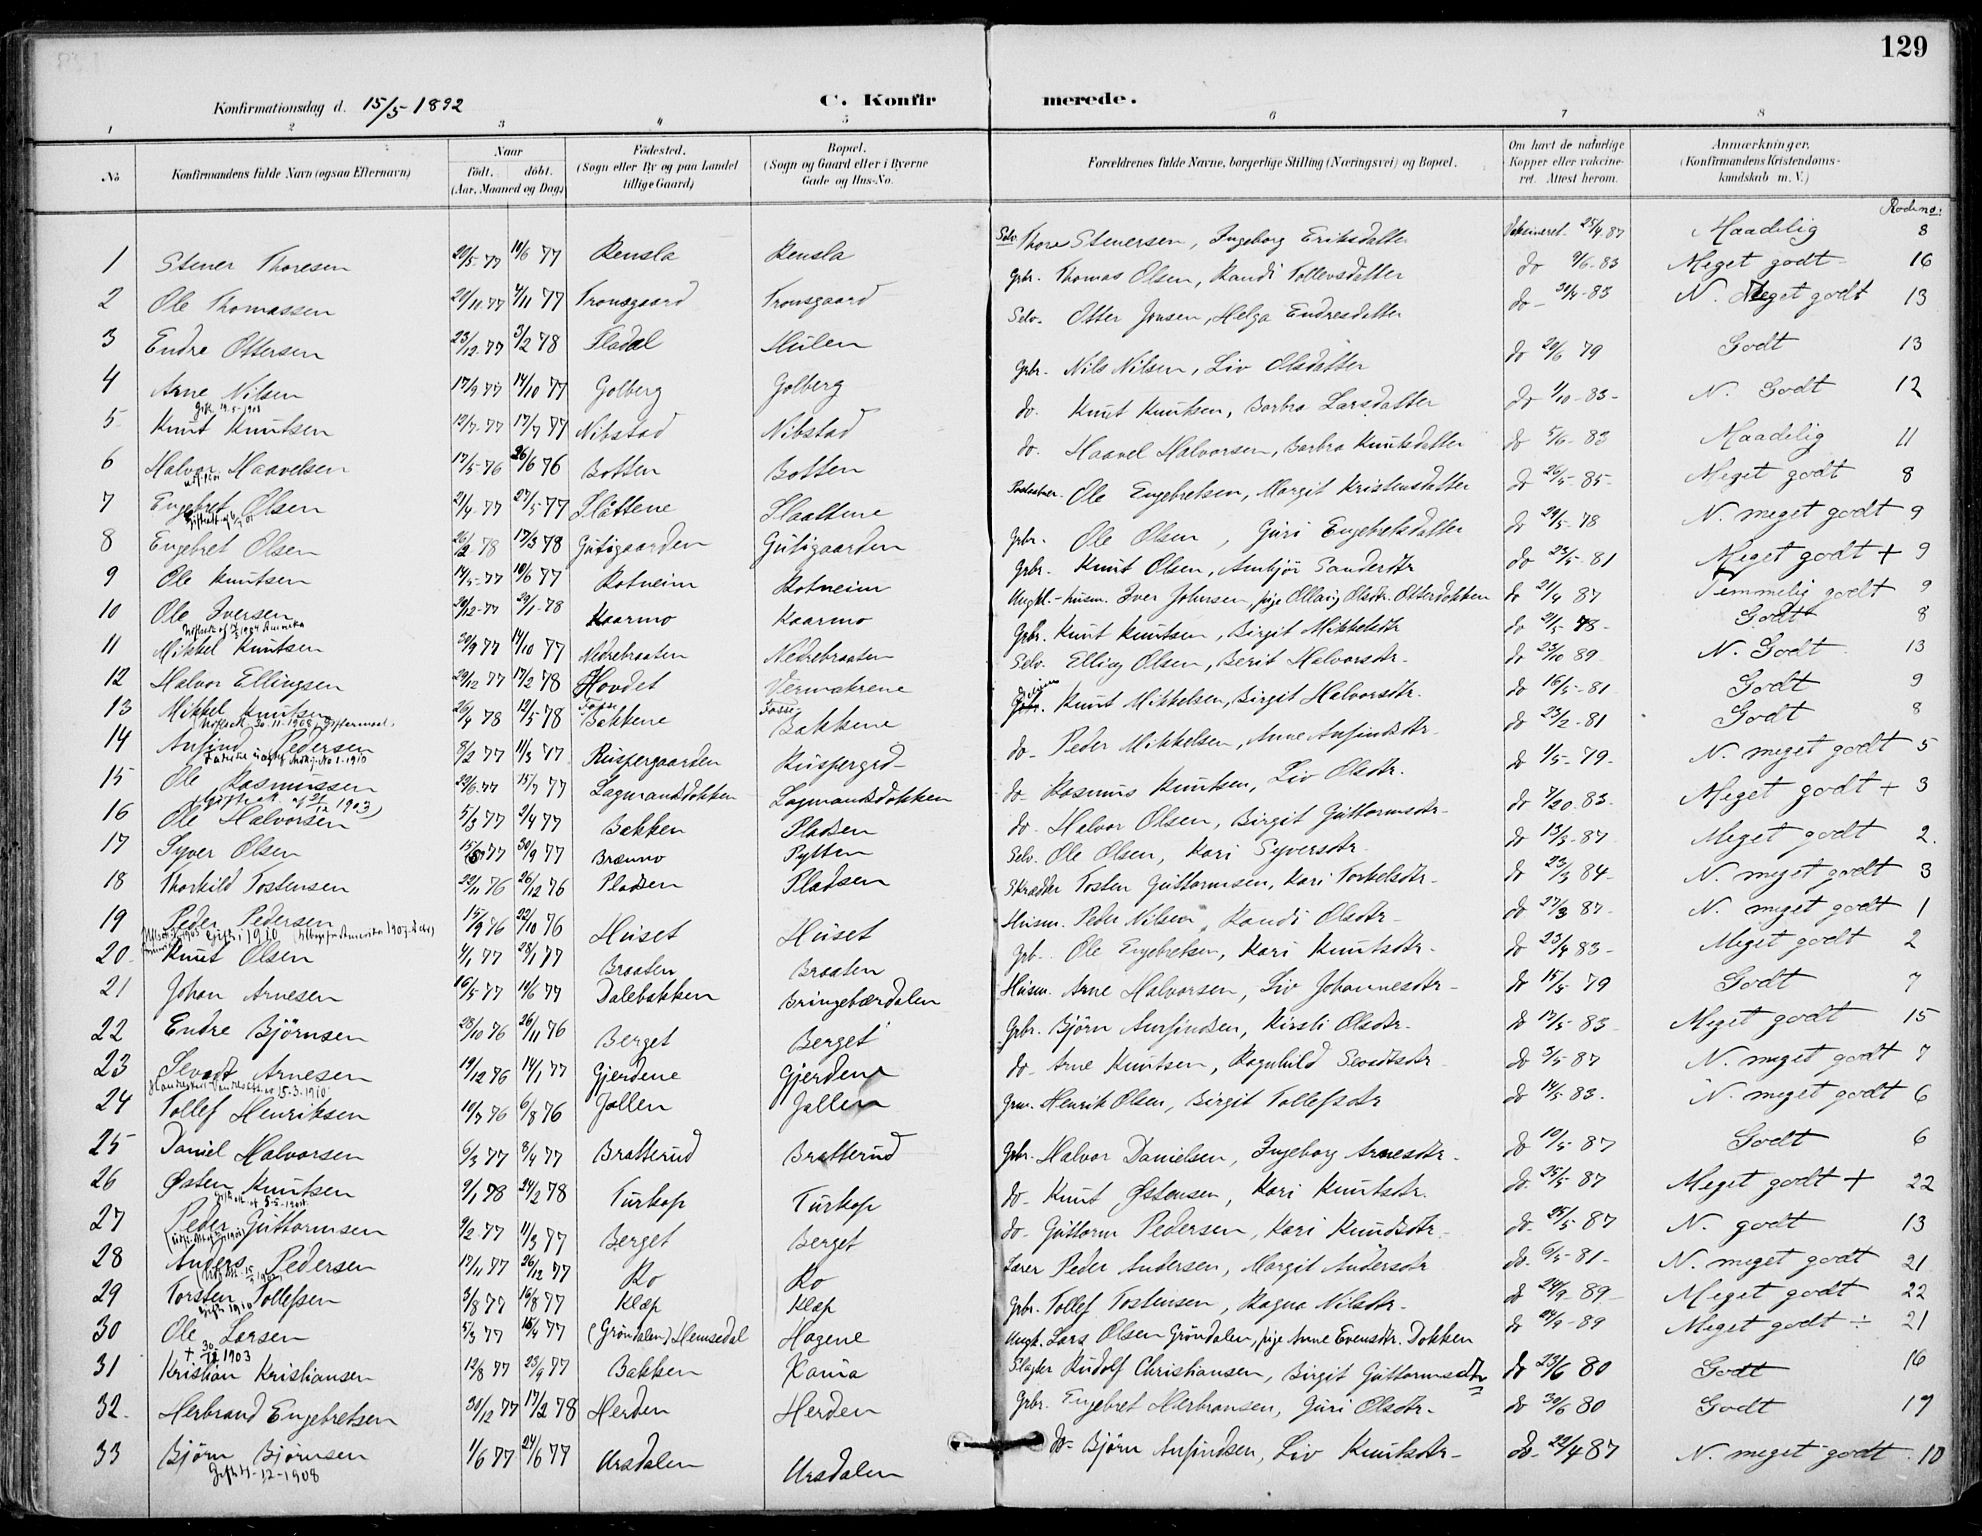 129
Konfirmationsdag d. 15/5-1892 C. Konfirmerede.
1 2 3 4 5 6 7 8
No Konfirmandens fulde Navn (ogsaa Efternavn) Naar født. døbt. (Aar, Maaned og Dag) Fødested. (Sogn eller By og paa Landet tillige Gaard) Bopæl. (Sogn og Gaard eller i Byerne Gade og Hus-No. Forældrenes fulde Navne, borgerlige Stilling (Næringsvei) og Bopæl. Om havt de naturlige Kopper eller vakcineret. Attest herom. Anmærkninger. (Konfirmandens Kristendomskundskab m. V.)
Rodeno:
1 Stener Thoresen 20/5-77 10/6 77 Rensla Rensla Selv. Thore Stenersen, Ingeborg Eriksdatter Vaksineret 25/4 87 Maadelig 8
2 Ole Thomassen 4/11 77 Tronsgaard Tronsgaard Gbr. Thomas Olsen, Randi Tollevsdatter do 9/6-83 Meget godt 16
3 Endre Ottersen 23/12-77 3/2 78 Fladal Hulen Selv. Otter Jonsen, Helga Endresdatter do 83 N. Meget godt 13
4 Arne Nilsen 17/9 77 14/10 77 Golberg Golberg Gbr. Nils Nilsen, Liv Olsdatter do 20/6 79 Godt 13
5 Knut Knutsen 12/7-77 17/7 77 Nibstad Nibstad do. Knut Knutsen, Barbra Larsdatter do 1/10-83- N. Godt 12
Gift 19.5-1903
6 Halvor Haavelsen 17/5-76 26/6 76 Botten Botten do. Haavel Halvorsen, Barbra Knutsdatter do 5/6-83 Maadelig 11
7 Engebret Olsen 21/4-77 27/5-77 Slåttene Slaattene Ole Engebretsen, Margit Kristensdatter do 26/5-85- Meget godt 8
8 Engebret Olsen 26/2 78 17/3 78 Gutigaarden Gutigaarden Gbr. Ole Olsen, Guri Engebretsdatter do 24/5-78 N. meget godt 9
9 Ole Knutsen 14/5-77 10/6 77 Rotneim Rotneim Gbr. Knut Olsen, Ambjør Sanderdtr do 23/5-81 Meget godt + 9
10 Ole Iversen 20/12-77 20/1-78 Kaarmo Kaarmo Ungkl.-husm. Iver Johnsen, pige Ollaug Olsdtr. Otterdokken do 21/4 87 Temmelig godt 9
11 Mikkel Knutsen 20/9 77 14/10 77 Nedrebraaten Nedrebraaten Gbr. Knut Knutsen, Birgit Mikkelsdtr do 21/5-78- Godt 8
12 Halvor Ellingsen 29/12 77 17/2 78 Hovdet Selv. Elling Olsen, Berit Halvorsdtr. do 23/10 89 N. Godt 13
13 Mikkel Knutsen 26/4 78 12/5 78 Bakkene Bakkene Knut Mikkelsen, Birgit Halvorsdtr. do 16/5-81 Godt 9
14 Anfind Pedersen 9/2 77 11/3 77 Ruspergaarden Ruspergrd- do- Peder Mikkelsen, Anne Anfindsdtr do 23/2-81 Godt 8
15 Ole Rasmussen 15/7 77 Lagmandsdokken Lagmandsdokken do- Rasmus Knutsen, Liv Olsdtr. do 1/5-79- N. meget godt 5
16 Ole Halvorsen 5/3 77 2/4 77 Bakken Pladsen do- Halvor Olsen, Birgit Guttormsdtr- do 83- Meget godt + 3
17 Syver Olsen 77 30/9 77 Brænno Pytten Selv. Ole Olsen, Kari Syversdtr. do 13/3-87 Meget godt 2.
18 Thorkild Tostensen 22/11 76 26/12 76 Pladsen Pladsen Skrædder Tosten Guttormsen, Kari Torkelsdtr- do 23/3 84- N. meget godt 3
19 Peder Pedersen 15/9 76 22/10 76 Huset Huset Husm. Peder Nilsen, Randi Olsdtr- do 27/3 87- N. meget godt 1
Gift i 1910
20. Knut Olsen 4/1 77 28/1 77 Braaten Braaten Gbr- Ole Engebretsen, Kari Knutsdtr. do 23/4 83- Meget godt 2
21 Johan Arnesen 16/5 77 10/6 77 Dalebakken Bringebærdalen Husm. Arne Halvorsen, Liv Johannesdtr- do 15/5 79 Godt 7
22 Endre Bjørnsen 28/10 76 26/11 76 Berget Berget Gbr. Bjørn Anfindsen, Kirsti Olsdtr- do 17/5-83- Meget godt 15
23 Sevat Arnesen 19/12 76 14/1 77 Gjerdene Gjerdene do- Arne Knutsen, Ragnhild Sevatsdtr do 3/5-87 N. meget godt 7
24 Tollef Henriksen 10/7 76 6/8 76 Jallen Jallen Henrik Olsen, Birgit Tollefsdtr do 14/5-83- N. meget godt 6
25 Daniel Halvorsen 6/3 77 3/4 77 Bratterud Bratterud Gbr. Halvor Danielsen, Ingeborg Arnesdtr- do 10/5-87 Godt 6
26 Østen Knutsen 9/1 78 24/2 78 Turkop Turkop do- Knut Østensen, Kari Knutsdtr. do 25/5 87 Meget godt + 22
27 Peder Guttormsen 9/2 77 11/3 77 Berget Berget do- Guttorm Pedersen, Kari Knudsdtr- do- 25/5 87 N. godt 13
28 Anders Pedersen 17/11 77 26/12 77 Ro Ro Lærer Peder Andersen, Margit Andersdtr do. 6/5-81- N. meget godt 21
29 Torsten Tollefsen 3/8 77 16/8 77 Klæp Klæp Gbr. Tollef Tostensen, Ragna Nilsdtr- do 24/9-89- Meget godt 22
Gift 1910
30 Ole Larsen 5/3 77 15/4 77 (Grøndalen) Hemsedal Hagene Ungk. Lars Olsen Grøndalen, pige Anne Evensdtr. Dokken do 24/9-89 Meget godt ÷ 21
+ 30/12 1903
31 Kristian Kristiansen 12/8 77 23/9 77 Bakken Xania Slagter Rudolf Christiansen, Birgit Guttormsdtr do 23/6 80 Godt 16
32. Herbrand Engebretsen 30/12 77 17/2 78 Herden Herden Gbr. Engebret Herbransen, Guri Olsdtr. do 30/6 80 Godt 19
33 Bjørn Bjørnsen 1/6 77 24/6 77 Ursdalen Ursdalen do- Bjørn Anfindsen, Liv Knutsdtr- do- 22/4 87 N. meget godt 10
Gift 4-12-1908